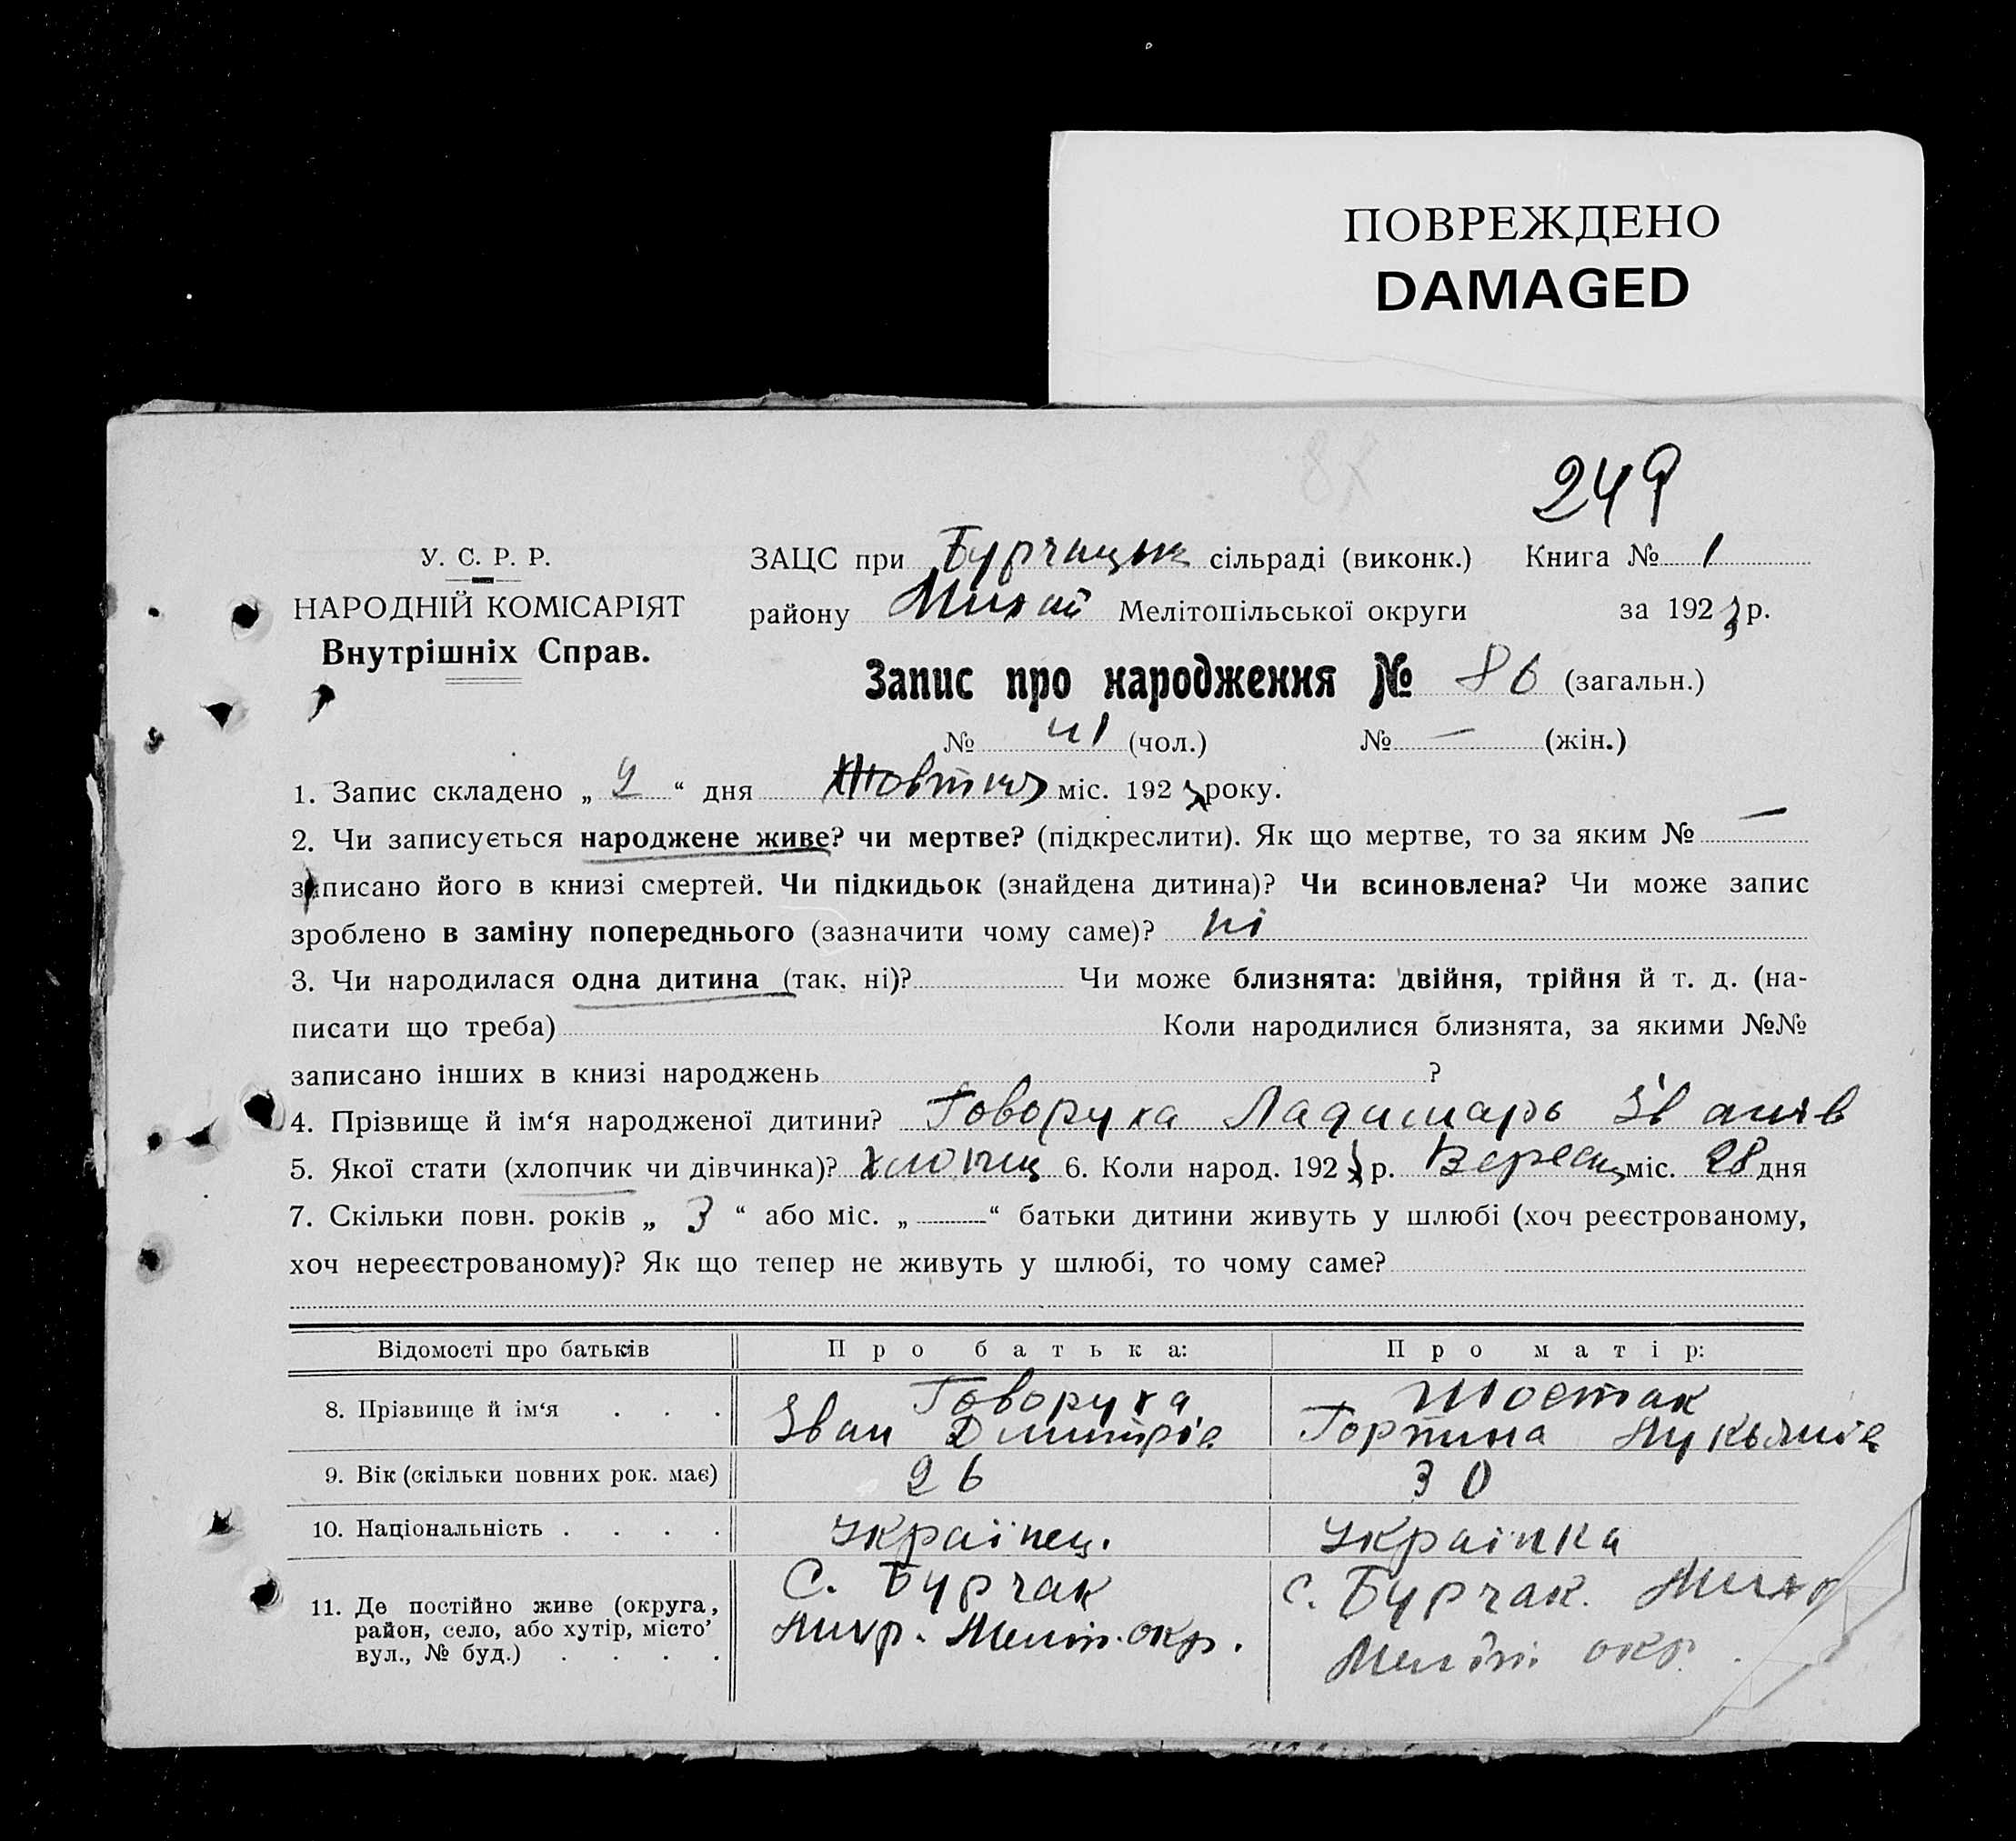 ПОВРЕЖДЕНО
DAMAGED
249
У. С. Р. Р.
НАРОДНІЙ КОМІСАРІЯТ
Внутрішніх Справ.
ЗАЦС при Бурчацьк сільраді (виконк.) Книга № 1
району Михай Мелітопільської округи за 192 р.
Запис про народження № 86 (загальн.)
№ 41 (чол.) № — (жін.)
1. Запис складено „ 2 “ дня Жовтня міс. 192 року.
2. Чи записується народжене живе? чи мертве? (підкреслити). Як що мертве, то за яким № —
записано його в книзі смертей. Чи підкидьок (знайдена дитина)? Чи всиновлена? Чи може запис
зроблено в заміну попереднього (зазначити чому саме)? ні
3. Чи народилася одна дитина (так, ні)? Чи може близнята: двійня, трійня й т. д. (на-
писати що треба) Коли народилися близнята, за якими №№
записано інших в книзі народжень ?
4. Прізвище й ім‘я народженої дитини? Говоруха Ладимарь Іванів
5. Якої стати (хлопчик чи дівчинка)? хлопец 6. Коли народ. 192 р. Вересц міс. 28 дня
7. Скільки повн. років „ 3 “ або міс. „ — “ батьки дитини живуть у шлюбі (хоч реєстрованому,
хоч нереєстрованому)? Як що тепер не живуть у шлюбі, то чому саме?
Відомості про батьків Про батька: Про матір:
8. Прізвище й ім‘я . . . Говоруха Шостак
Іван Дмитрів Горпина Лукьянів
9. Вік (скільки повних рок. має) 26 30
10. Національність . . . . Українец. Українка
11. Де постійно живе (округа, район, село, або хутір, місто’ вул., № буд.) . . . . С. Бурчак С. Бурчак. Мих р
Мир. Меліт. окр. Меліт. окр.